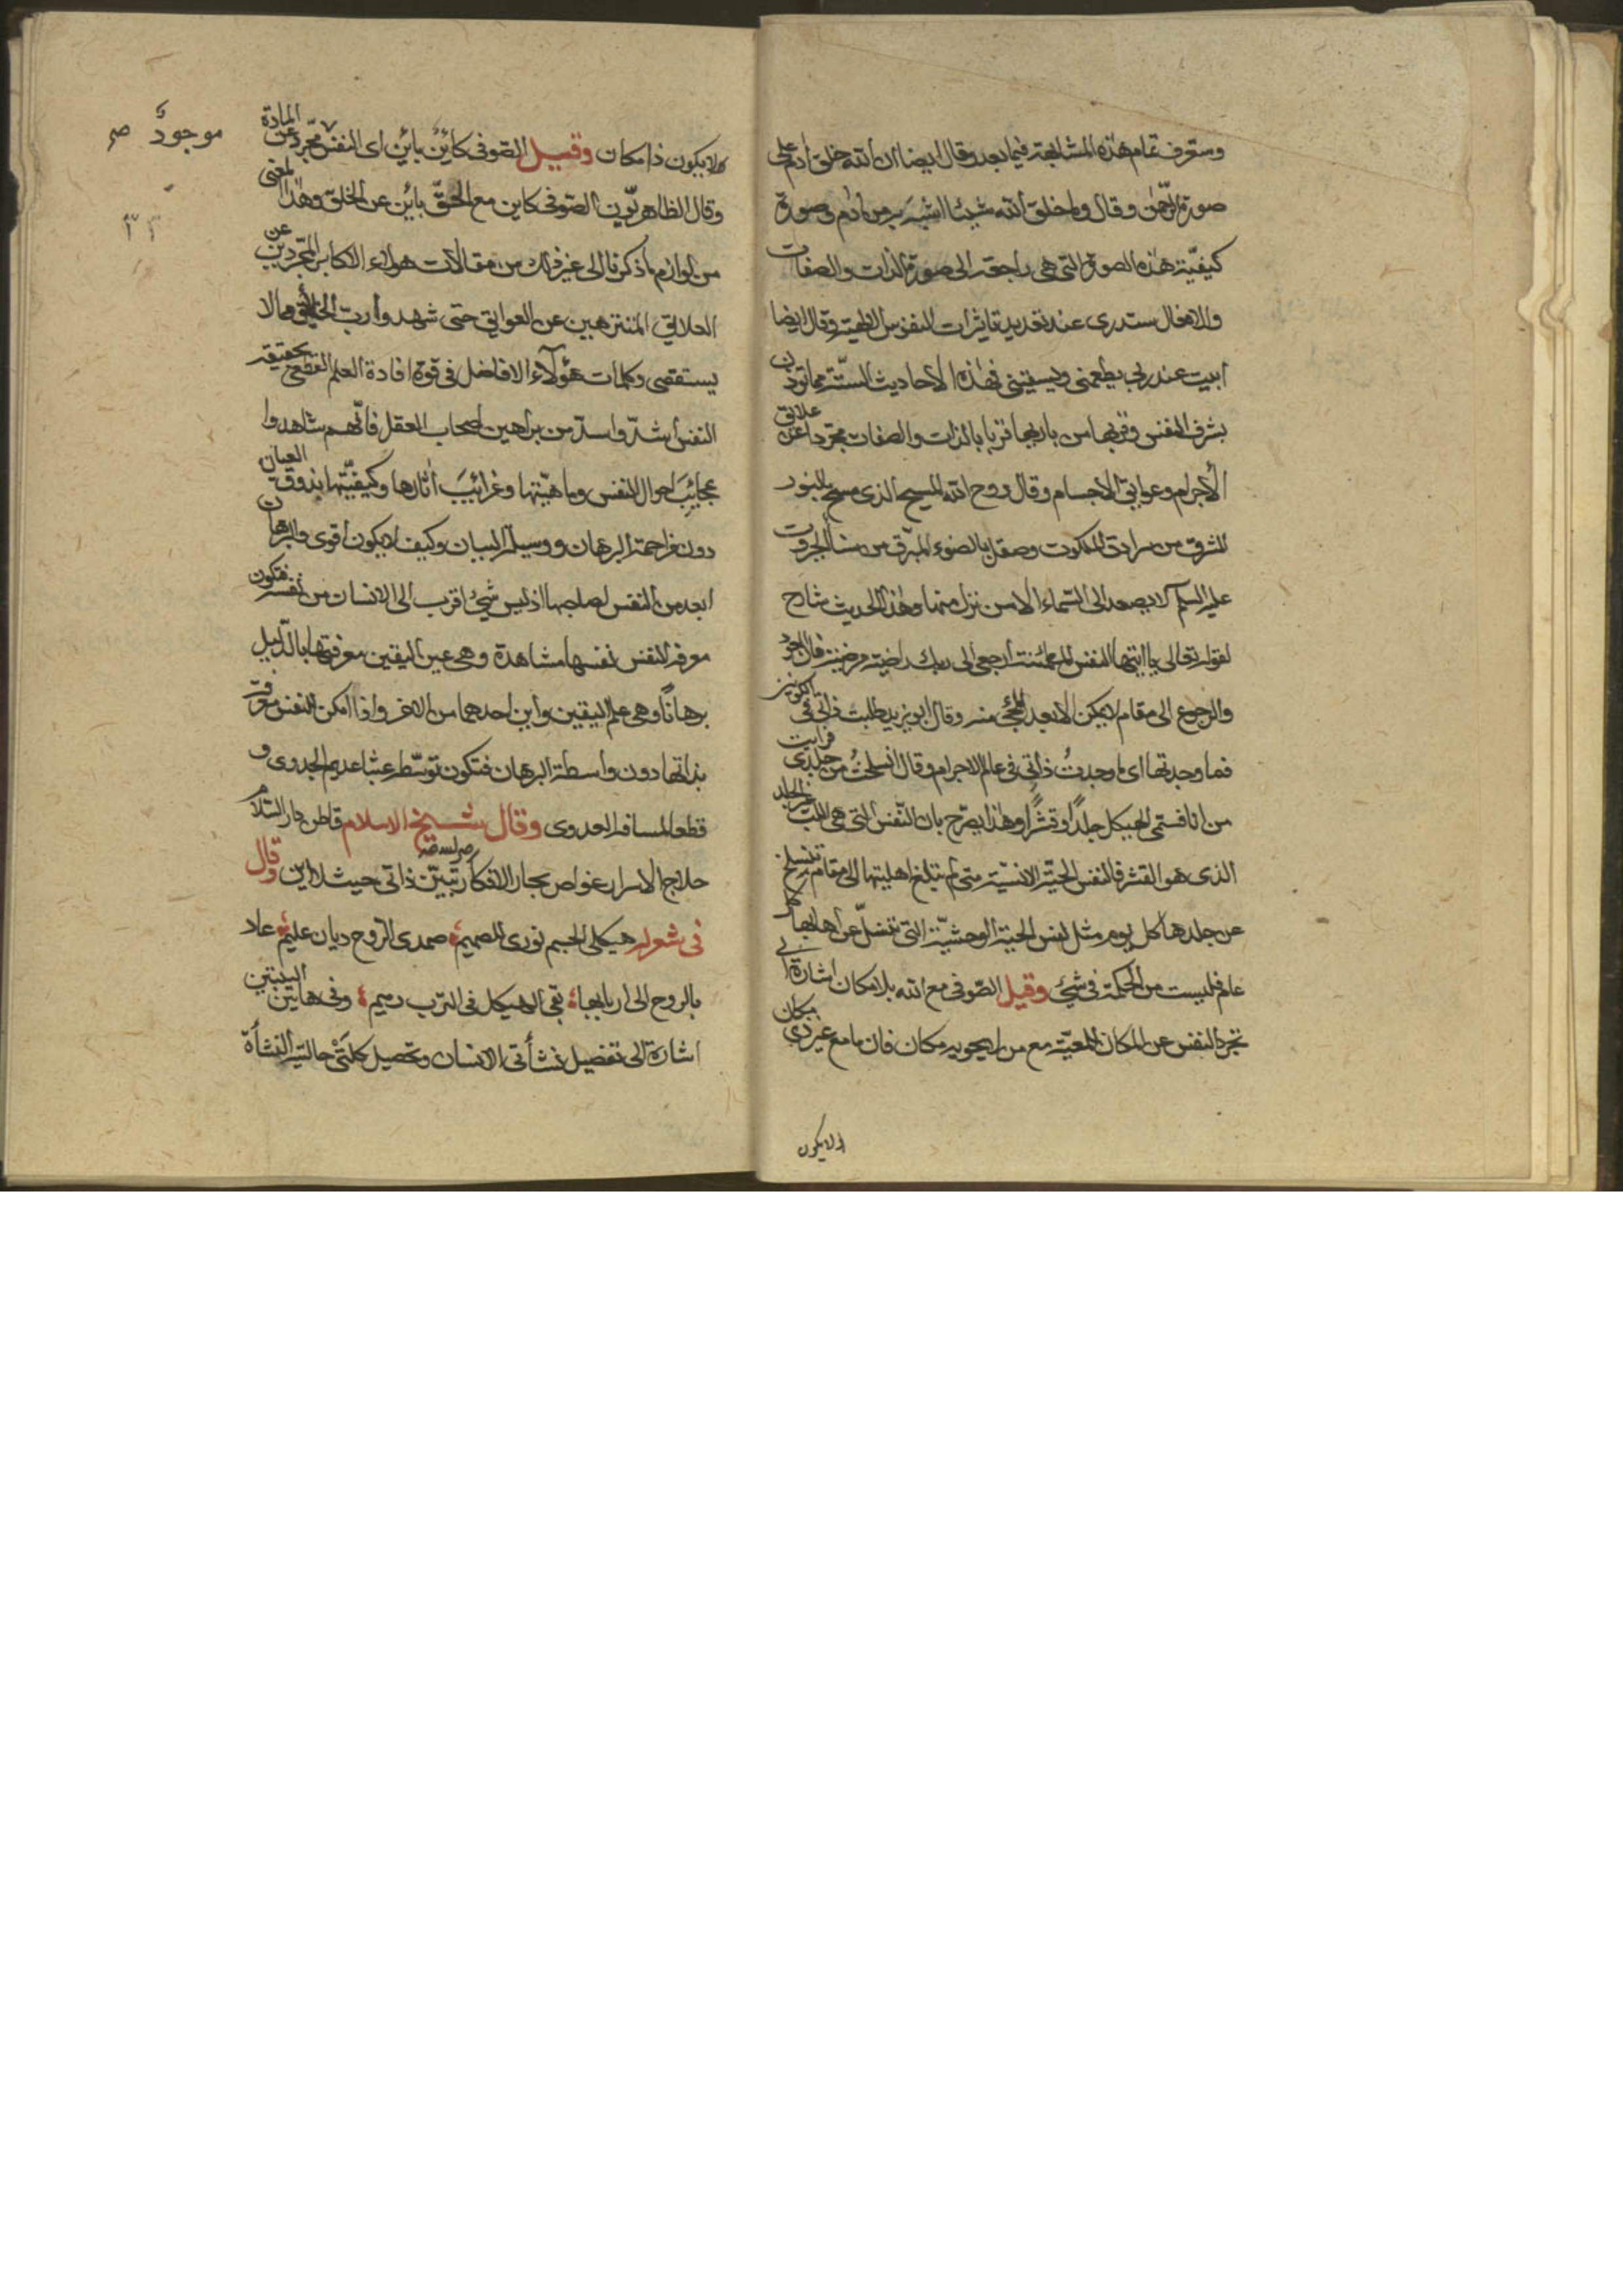 وستعرف تمام هذه المشابهة فيما بعد وقال ايضا ان الله خلق ادم على
صورة الرحمٰن وقال وما خلق الله شيئا اشبه به من ادم وصورة
كيفيّة هذه الصورة التى هى راجعة الى صورة الذات والصفات
والافعال ستدرى عند تعديد تاثيرات النفوس الالهية وقال ايضا
ابيت عند ربى يطعمنى ويسقينى فهذه الأحاديث الستّة مما تؤذن
بشرف النفس وقربها من باريها قربا بالذات والصفات مجردا عن علائق
الأجرام وعوائق الاجسام وقال روح الله المسيح الذى مسح بالنور
المشرق من سرادق الملكوت وصقل بالضوء المبرق من سنا الجبروت
عليه السلم لا يصعد الى السّماء الا من نزل منها وهذا الحديث شارح
لقوله تعالى يا ايتها النفس المطمئنة ارجعى الى ربك راضية مرضية فان العود
والرجوع الى مقام لا يمكن الا بعد المجئ منه وقال ابو يزيد طلبت ذاتى فى الكونين
فما وجدتها اى ما وجدتُ ذاتى فى عالم الاجرام وقال انسلختُ من جلدى فرايت
من انا فسمى الهيكل جلدًا وقشرًا وهذا يصرّح بان النّفس التى هى اللبّ غير الجلد
الذى هو القشر فالنفس الحيّة الانسيّة متى لم تبلغ اهليتها الى مقام تنسلخ
عن جلدها كل يوم مثل لنفس الحيّة الوحشيّة التى تنسلّ عن اهابها كل
عام فليست من الحكمة فى شئ وقيل الصّوفى مع الله بلا مكان اشارة الى
تجرد النفس عن المكان المعيّة مع من لا يحويه مكان فان ما مع غير ذى مكان
لا يكون
لا يكون ذا مكان وقيل الصّوفى كائن بائن اى النفس مجرد عن المادة
موجودٌ صح
وقال الظاهريّون الصّوفى كاين مع الحقّ بائن عن الخلق وهذا المعنى
من لوازم ما ذكرنا الى غير ذلك من مقالات هولاء الاكابر المجّردين عن
العلائق المنتزهين عن العوائق حتى شهدوا ربّ الخلائق مما لا
يستقصى وكلمات هؤلاء الافاضل فى قوة افادة العلم القطعى بحقيقة
النفس اشدّ واسدّ من براهين اصحاب العقل فانّهم شاهدوا
عجائِبَ احوال النفس وماهيّتها وغرائِبَ اٰثارها وكيفيّتها بذوق العيان
دون مزاحمة البرهان ووسيلة البيان وكيف لا يكون اقوى والبرهان
ابعد من النفس لصاحبها اذ ليس شيئ اقرب الى الانسان من نفسه فتكون
معرفة النفس نفسها مشاهدة وهى عين اليقين معرفتها بالدّليل
برهانًا وهى علم اليقين واين احدهما من الاخر واذا امكن للنفس معرفة
بذاتها دون واسطة البرهان فتكون توسّطه عبثا عديم الجدوى و
قطعا لمسافة العدوى وقال شيخ الاسلام قاطن دار السّلام
حلاج الاسرار غواص بحار الافكار تبيّن ذاتى حيث لا اين وقال
فى شعره هيكلى الجسم نورى الصميم صمدى الرّوح ديان عليم عاد
بالروح الى اربابها بقى الهيكل فى الترب رميم وفى هاتين البيتين
اشارة الى تفصيل نشأتى الانسان وتحصيل كلتى حالتيه النشأة